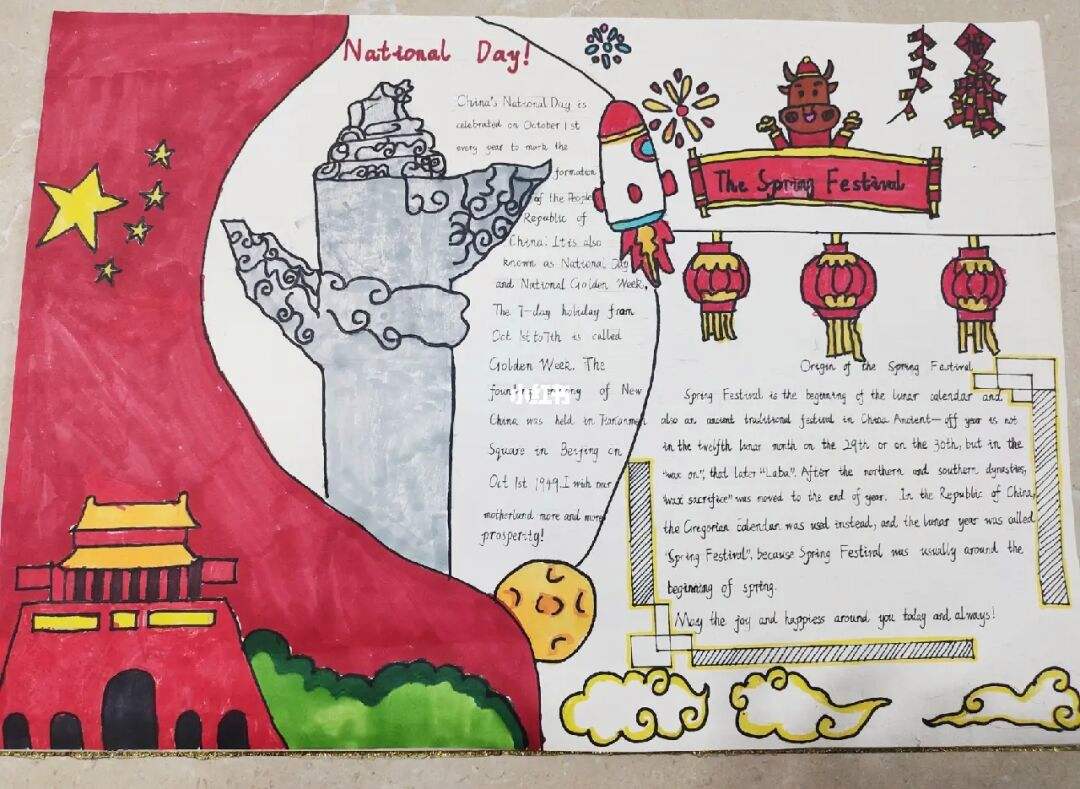 National Day!
China's National Day is
celebrated on October 1st
every year to mark the
formation
of the People
Republic of
China. It is also
known as National Day
and National Golden Week.
The 7-day holiday from
Oct 1st to 7th is called
Golden Week. The
of New
China was held in
Square in Beijing on
Oct 1st 1949. I wish our
motherland more and more
prosperity!
小红书
The Spring Festival
Origin of the Spring Festival
Spring Festival is the beginning of the lunar calendar and
also an ancient traditional festival in China. Ancient-off year is not
in the twelfth lunar month on the 29th or on the 30th, but in the
"wax on", that later "Laba". After the northern and southern dynasties,
"wax sacrifice" was moved to the end of year. In the Republic of China,
the Gregorian calendar was used instead, and the lunar year was called
"Spring Festival", because Spring Festival was usually around the
beginning of spring.
May the joy and happiness around you today and always!